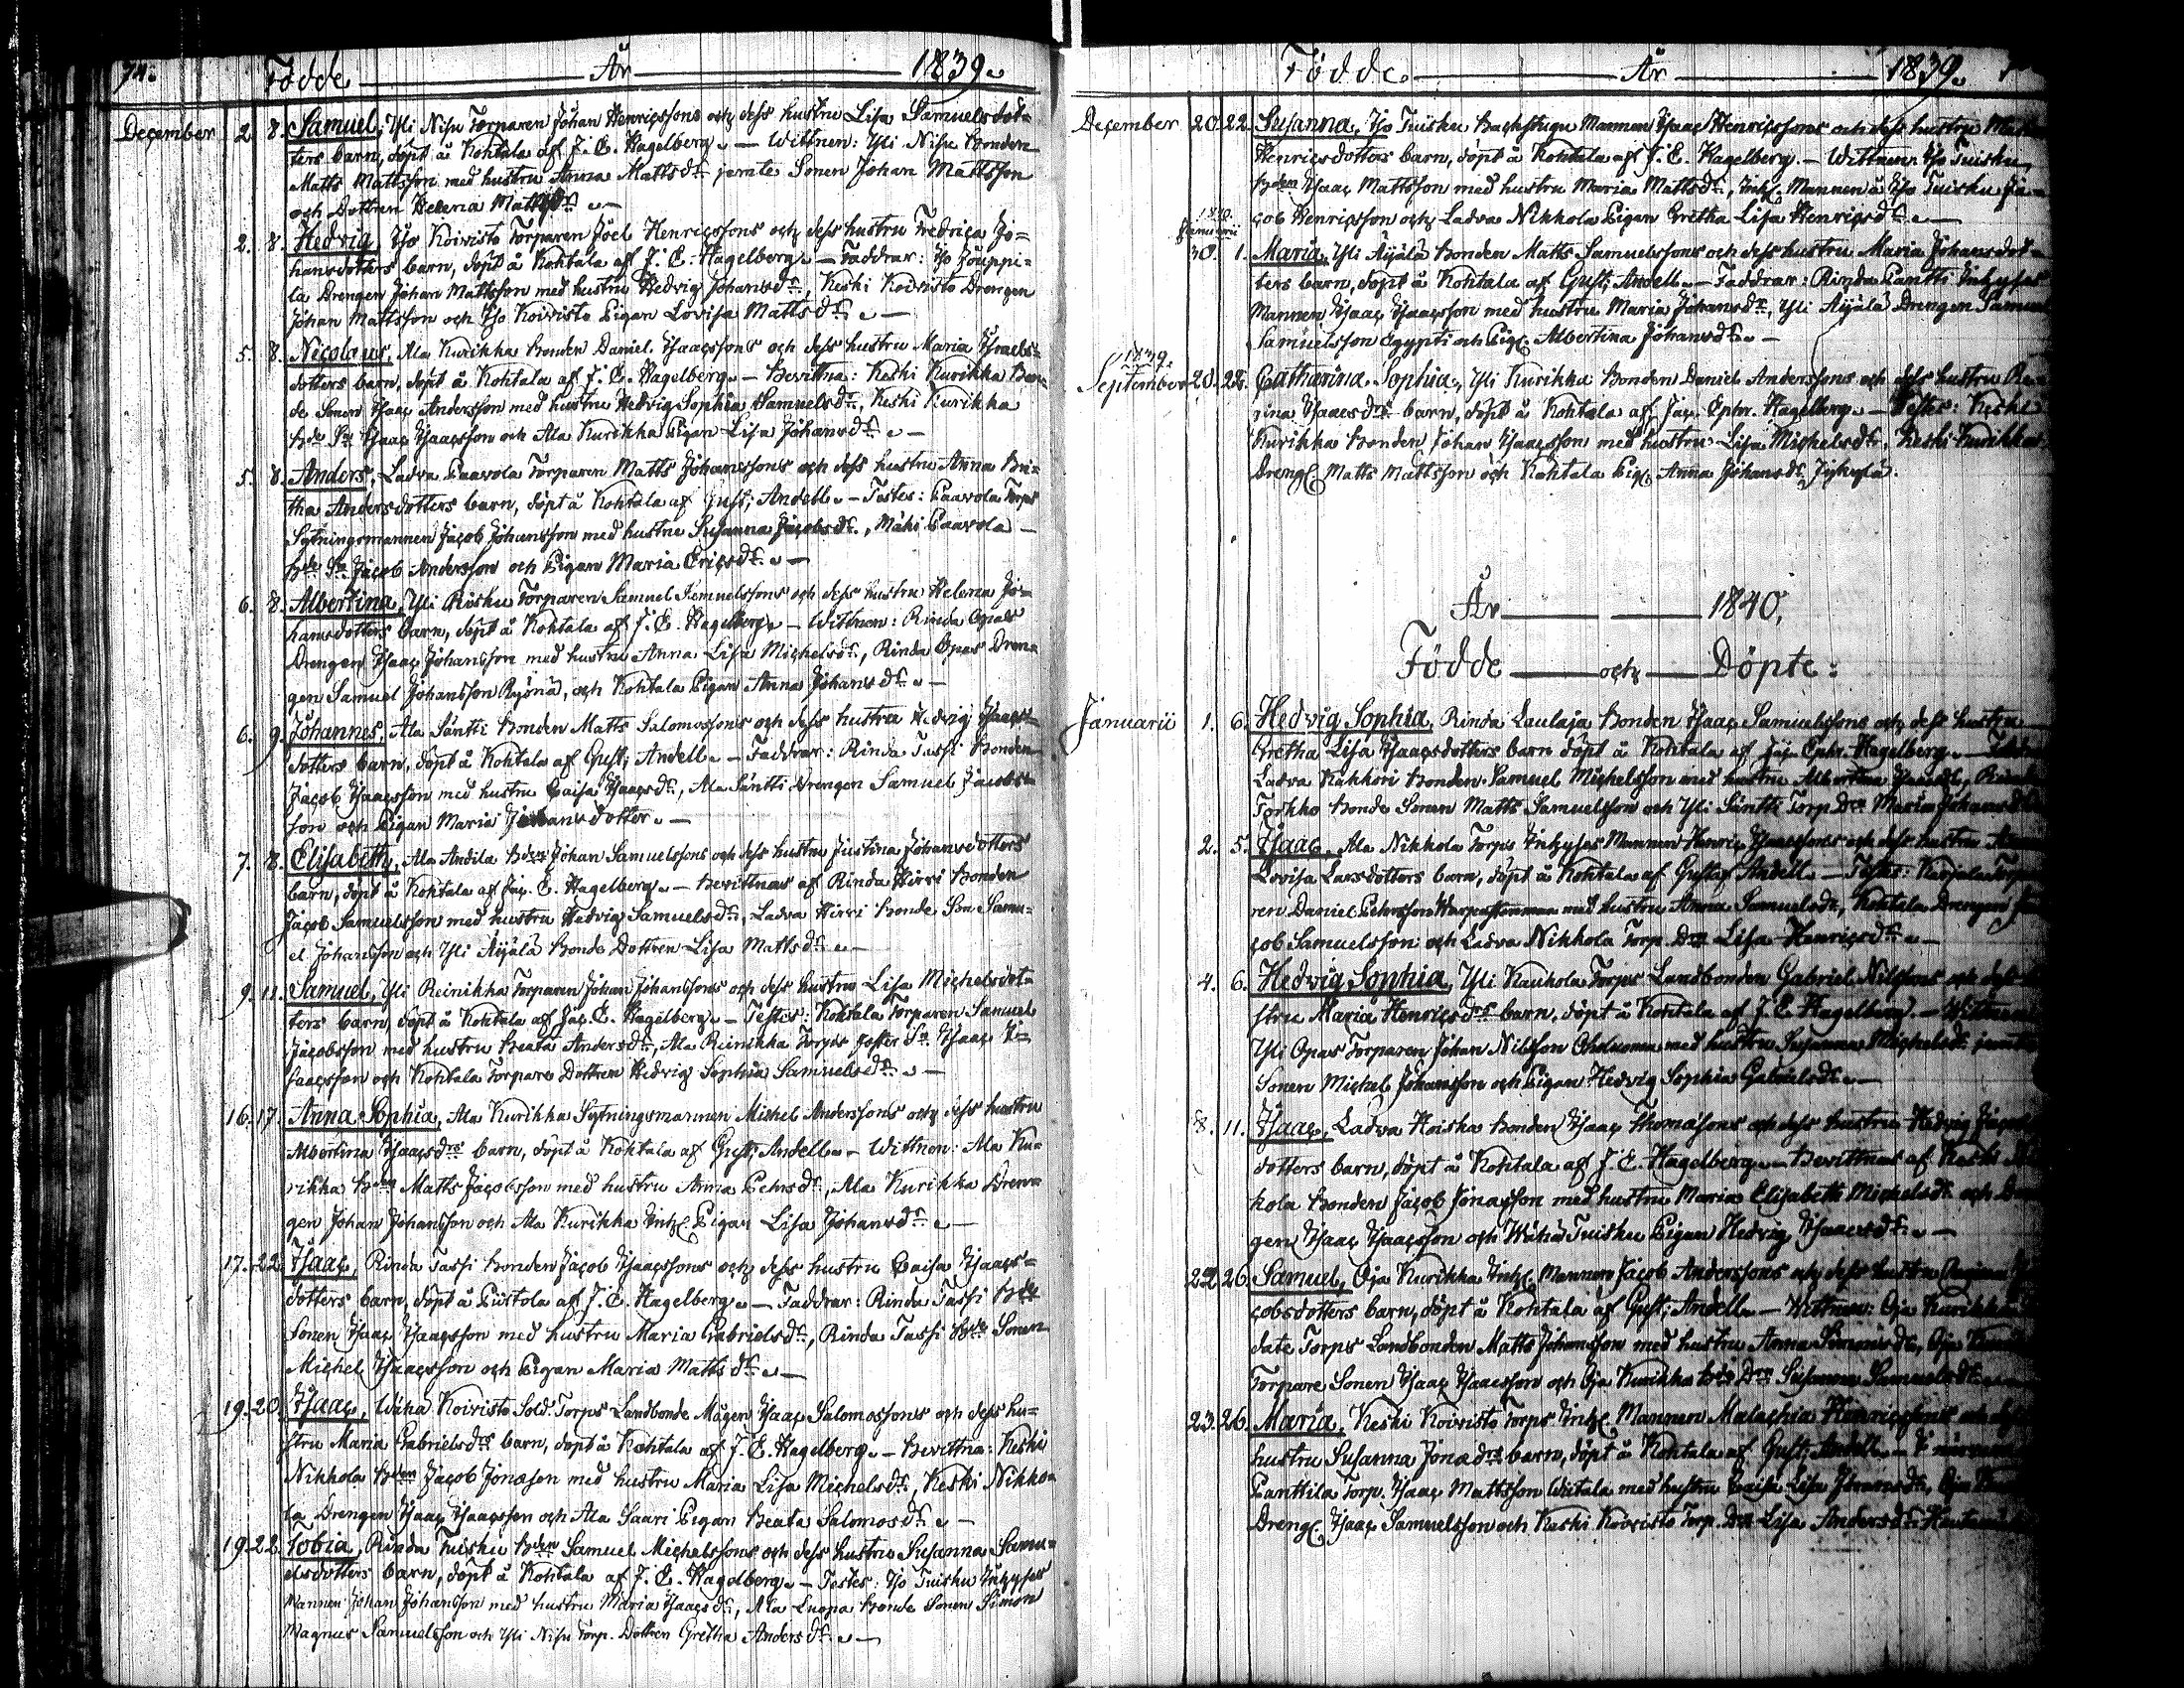 74. Födde År 1839.
December 2. 8. Samuel, Yli Nisu Torparen Johan Henricssons och dess hustru Lisa Samuelsdot-
ters barn, döpt å Kohtala af J. E. Hagelberg. — Wittnen: Yli Nisu Bonden
Matts Mattsson med hustru Anna Mattsdr jemte Sonen Johan Mattsson
och Dottren Helena Mattsdr. —
2. 8. Hedvig, Iso Koivisto Torparen Joel Henricssons och dess hustru Fredrica Jo=
hansdotters barn, döpt å Kohtala af J. E. Hagelberg. — Faddrar: Iso Jouppi=
la Drengen Johan Mattsson med hustru Hedvig Johansdr, Keski Koivisto Drengen
Johan Mattsson och Iso Koivisto Pigan Lovisa Mattsdr. —
5. 8. Nicolaus, Ala Kurikka Bonden Daniel Isaacssons och dess hustru Maria Israels=
dotters barn, döpt å Kohtala af J. E. Hagelberg. — Bevittna: Keski Kurikka Bon=
de Sonen Isaac Andersson med hustru Hedvig Sophia Samuelsdr, Keski Kurikka
Bde Sn Isaac Isaacsson och Ala Kurikka Pigan Lisa Johansdr. —
5. 8. Anders, Ladva Paavola Torparen Matts Johanssons och dess hustru Anna Bri=
tha Andersdotters barn, döpt å Kohtala af Gust: Andell. — Testes: Paavola Torps
Sytningsmannen Jacob Johansson med hustru Susanna Jacobsdr, Mäki Paavola
Bde Sn Jacob Andersson och Pigan Maria Ericsdr. —
6. 8. Albertina, Yli Risku Torparen Samuel Samuelssons och dess hustru Helena Jo=
hansdotters barn, döpt å Kohtala af J. E. Hagelberg. — Wittnen: Rinda Opas
Drengen Isaac Johansson med hustru Anna Lisa Michelsdr, Rinda Opas Dren=
gen Samuel Johansson Ryönä, och Kohtala Pigan Anna Johansdr. —
6. 9. Johannes, Ala Säntti Bonden Matts Salomossons och dess hustru Hedvig Isaacs=
dotters barn, döpt å Kohtala af Gust: Andell. — Faddrar: Rinda Tassi Bonden
Jacob Isaacsson med hustru Caisa Isaacsdr, Ala Säntti Drengen Samuel Jacobs=
son och Pigan Maria Johansdotter. —
7. 8. Elisabeth, Ala Andila Bden Johan Samuelssons och dess hustru Justina Johansdotters
barn, döpt å Kohtala af Jac. E. Hagelberg. — Bevittnas af Rinda Hirri Bonden
Jacob Samuelsson med hustru Hedvig Samuelsdr, Ladva Hirri Bonde Son Samu=
el Johansson och Yli Äijälä Bonde Dottren Lisa Mattsdr. —
9. 11. Samuel, Yli Reinikka Torparen Johan Johanssons och dess hustru Lisa Michelsdot=
ters barn, döpt å Kohtala af Jac. E. Hagelberg. — Testes: Kohtala Torparen Samuel
Jacobsson med hustru Beata Andersdr, Ala Reinikka Torps foster Sn Isaac I=
saacsson och Kohtala Torpare Dottren Hedvig Sophia Samuelsdr. —
16. 17. Anna Sophia, Ala Kurikka Sytningsmannen Michel Anderssons och dess hustru
Albertina Isaacsdrs barn, döpt å Kohtala af Gust: Andell. — Wittnen: Ala Ku=
rikka Bden Matts Jacobsson med hustru Anna Pehrsdr, Ala Kurikka Dren=
gen Johan Johansson och Ala Kurikka Inh: Pigan Lisa Johansdr. —
17. 22. Isaac, Rinda Tassi Bonden Jacob Isaacssons och dess hustru Caisa Isaacs=
dotters barn, döpt å Piistola af J. E. Hagelberg. — Faddrar: Rinda Tassi Bde
Sonen Isaac Isaacsson med hustru Maria Gabrielsdr, Rinda Tassi Bde Sonen
Michel Isaacsson och Pigan Maria Mattsdr. —
19. 20. Isaac, Wähä Koivisto Sold. Torps Landbonde Mågen Isaac Salomossons och dess hu=
stru Maria Gabrielsdrs barn, döpt å Kohtala af J. E. Hagelberg. — Bevittna: Keski
Nikkola Bden Jacob Jonasson med hustru Maria Lisa Michelsdr, Keski Nikko=
la Drengen Isaac Isaacsson och Ala Saari Pigan Beata Salomosdr. —
19. 22. Tobia, Rinda Tuisku Bden Samuel Michelssons och dess hustru Susanna Samu=
elsdotters barn, döpt å Kohtala af J. E. Hagelberg. — Testes: Iso Tuisku Inhyses
Mannen Johan Johansson med hustru Maria Isaacsdr, Ala Luopa Bonde Sonen Simon
Magnus Samuelsson och Yli Nisu Torp. Dottren Gretha Andersdr. —
Födde År 1839.
December 20. 22. Susanna, Iso Tuisku Backstugu Mannen Isaac Henricssons och dess hustru
Henricsdotters barn, döpt å Kohtala af J. E. Hagelberg. — Wittnen: Iso Tuisku
Bden Isaac Mattsson med hustru Maria Mattsdr, Inh: Mannen å Iso Tuisku Ja=
cob Henricsson och Ladva Nikkola Pigan Gretha Lisa Henricsdr. —
1840.
Januarii
30. 1. Maria, Yli Äijälä Bonden Matts Samuelssons och dess hustru Maria Johansdot=
ters barn, döpt å Kohtala af Gust: Andell. — Faddrar: Rinda Pantti Inhyses
Mannen Isaac Isaacsson med hustru Maria Johansdr, Yli Äijälä Drengen Samuel
Samuelsson Egypti och Pig: Albertina Johansdr. —
1839.
September 20. 28. Catharina Sophia, Yli Kurikka Bonden Daniel Anderssons och dess hustru Re=
gina Isaacsdrs barn, döpt å Kohtala af Jac. Ephr. Hagelberg. — Testes: Keski
Kurikka Bonden Johan Isaacsson med hustru Lisa Michelsdr, Keski Kurikka
Dreng: Matts Mattsson och Kohtala Pig: Anna Johansdr Jyhylä.
År 1840.
Födde och Döpte:
Januarii 1. 6. Hedvig Sophia, Rinda Laulaja Bonden Isaac Samuelssons och dess hustru
Gretha Lisa Isaacsdotters barn döpt å Kohtala af Jac. Ephr. Hagelberg. —
Ladva Kakkori Bonden Samuel Michelsson med hustru Albertina
Torkko Bonde Sonen Matts Samuelsson och Yli Säntti Torp. Drn Maria Johansdr
2. 5. Isaac, Ala Nikkola Torps Inhyses Mannen Henric Isaacssons och dess hustru
Lovisa Larsdotters barn, döpt å Kohtala af Gustaf Andell. — Testes: Karjala Torpa
ren Daniel Pehrsson med hustru Anna Samuelsdr, Kohtala Drengen Ja
cob Samuelsson och Ladva Nikkola Torp. Drn Lisa Henricsdr. —
4. 6. Hedvig Sophia, Yli Kauhola Torps Landbonden Gabriel Nilssons och dess
stru Maria Henricsdrs barn, döpt å Kohtala af J. E. Hagelberg. — Wittnen
Yli Opas Torparen Johan Nilsson med hustru Susanna Michelsdr jemte
Sonen Michel Johansson och Pigan Hedvig Sophia Gabrielsdr. —
8. 11. Isaac, Ladva Hoiska Bonden Isaac Thomassons och dess hustru Hedvig Jacobs
dotters barn, döpt å Kohtala af J. E. Hagelberg. — Bevittnas af Keski
kola Bonden Jacob Jonasson med hustru Maria Elisabeth Michelsdr och
gen Isaac Isaacsson och Wähä Tuisku Pigan Hedvig Isaacsdr. —
22. 26. Samuel, Oja Kurikka Inh: Mannen Jacob Anderssons och dess hustru Regina
cobsdotters barn, döpt å Kohtala af Gust: Andell. — Wittnen: Oja Kurikka
date Torps Landbonden Matts Johansson med hustru Anna, Oja
Torpare Sonen Isaac Isaacsson och Oja Kurikka Bde Drn Susanna Samuelsdr
23. 26. Maria, Keski Koivisto Torps Inh: Mannen Malachia Henricssons och dess
hustru Susanna Jonædrs barn, döpt å Kohtala af Gust: Andell. —
Panttila Torp. Isaac Mattsson Witala med hustru Caisa Lisa, Oja
Dreng: Isaac Samuelsson och Keski Koivisto Torp. Drn Lisa Andersdr